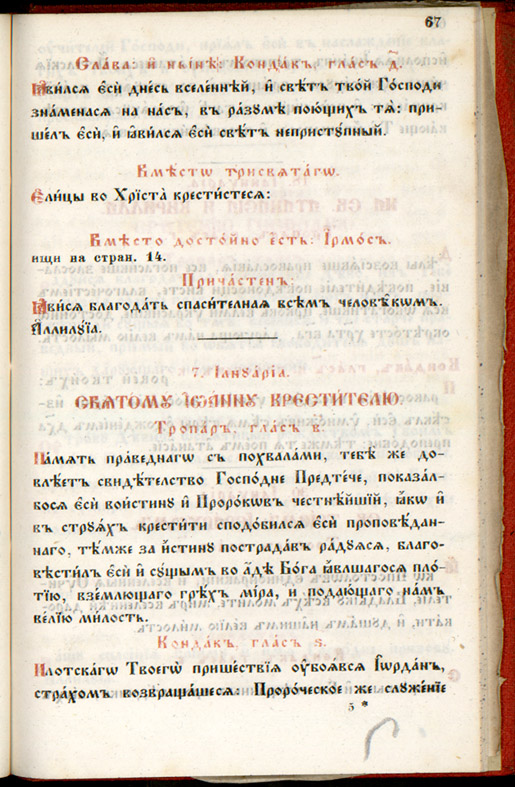 67
Сла́ва: и҆ ны́нѣ: Конда́къ, гла́съ д҃.
Ꙗ҆ви́лсѧ є҆сѝ дне́сь вселе́ннѣй, и҆ свѣ́тъ тво́й Го́споди
зна́менасѧ на на́съ, въ ра́зумѣ пою́щихъ тѧ̀: при-
ше́лъ є҆сѝ, и҆ ꙗ҆ви́лсѧ є҆сѝ свѣ́тъ непристꙋ́пный.
Вмѣ́стѡ трисвѧта́гѡ.
Є҆ли́цы во Хрїста̀ крести́стесѧ:
Вмѣ́сто досто́йно є҆сть: І҆рмо́съ.
ищи на стран. 14.
Прича́стен:
Ꙗ҆ви́сѧ благода́ть спаси́телнаѧ всѣ̑мъ человѣ́кѡмъ.
А҆ллилꙋ́їа.
7. І҆аннꙋа́рїа.
СВѦТОМꙊ ІѠАННꙊ КРЕСТИТЕЛЮ.
Тропа́ръ, гла́съ в҃.
Па́мѧть пра́веднагѡ съ похвала́ми, тебѣ́ же до-
влѣ́етъ свидѣ́телство Госпо́дне Предте́че, показа́л-
босѧ є҆сѝ вои́стинꙋ и҆ Проро́кѡвъ честнѣ́йшїй, ꙗ҆́кѡ и҆
въ стрꙋѧ́хъ крести́ти сподо́билсѧ є҆сѝ проповѣ́дан-
наго, тѣ́мже за и҆́стинꙋ пострада́въ ра́дꙋѧсѧ, благо-
вѣсти́лъ є҆сѝ и҆ сꙋ́щымъ во а҆́дѣ Бо́га ꙗ҆́вльшагосѧ пло́-
тїю, взе́млющаго грѣ́хъ мі́ра, и подаю́щаго на́мъ
ве́лїю ми́лость.
Конда́къ, гла́съ ѕ҃.
Плотска́гѡ Твоегѡ̀ прише́ствїѧ ᲂу҆боѧ́всѧ І҆ѡрда́нъ,
стра́хомъ возвраща́шесѧ: Проро́ческое же слꙋже́нїе
5 *